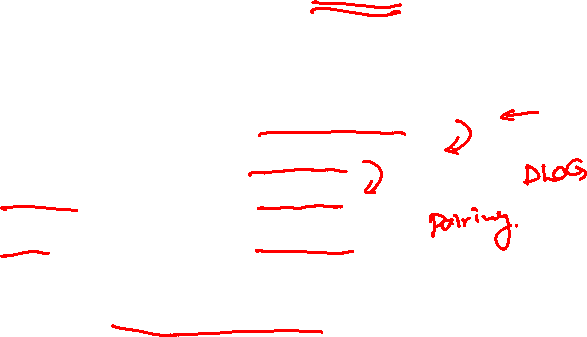 DLOG
pairing.